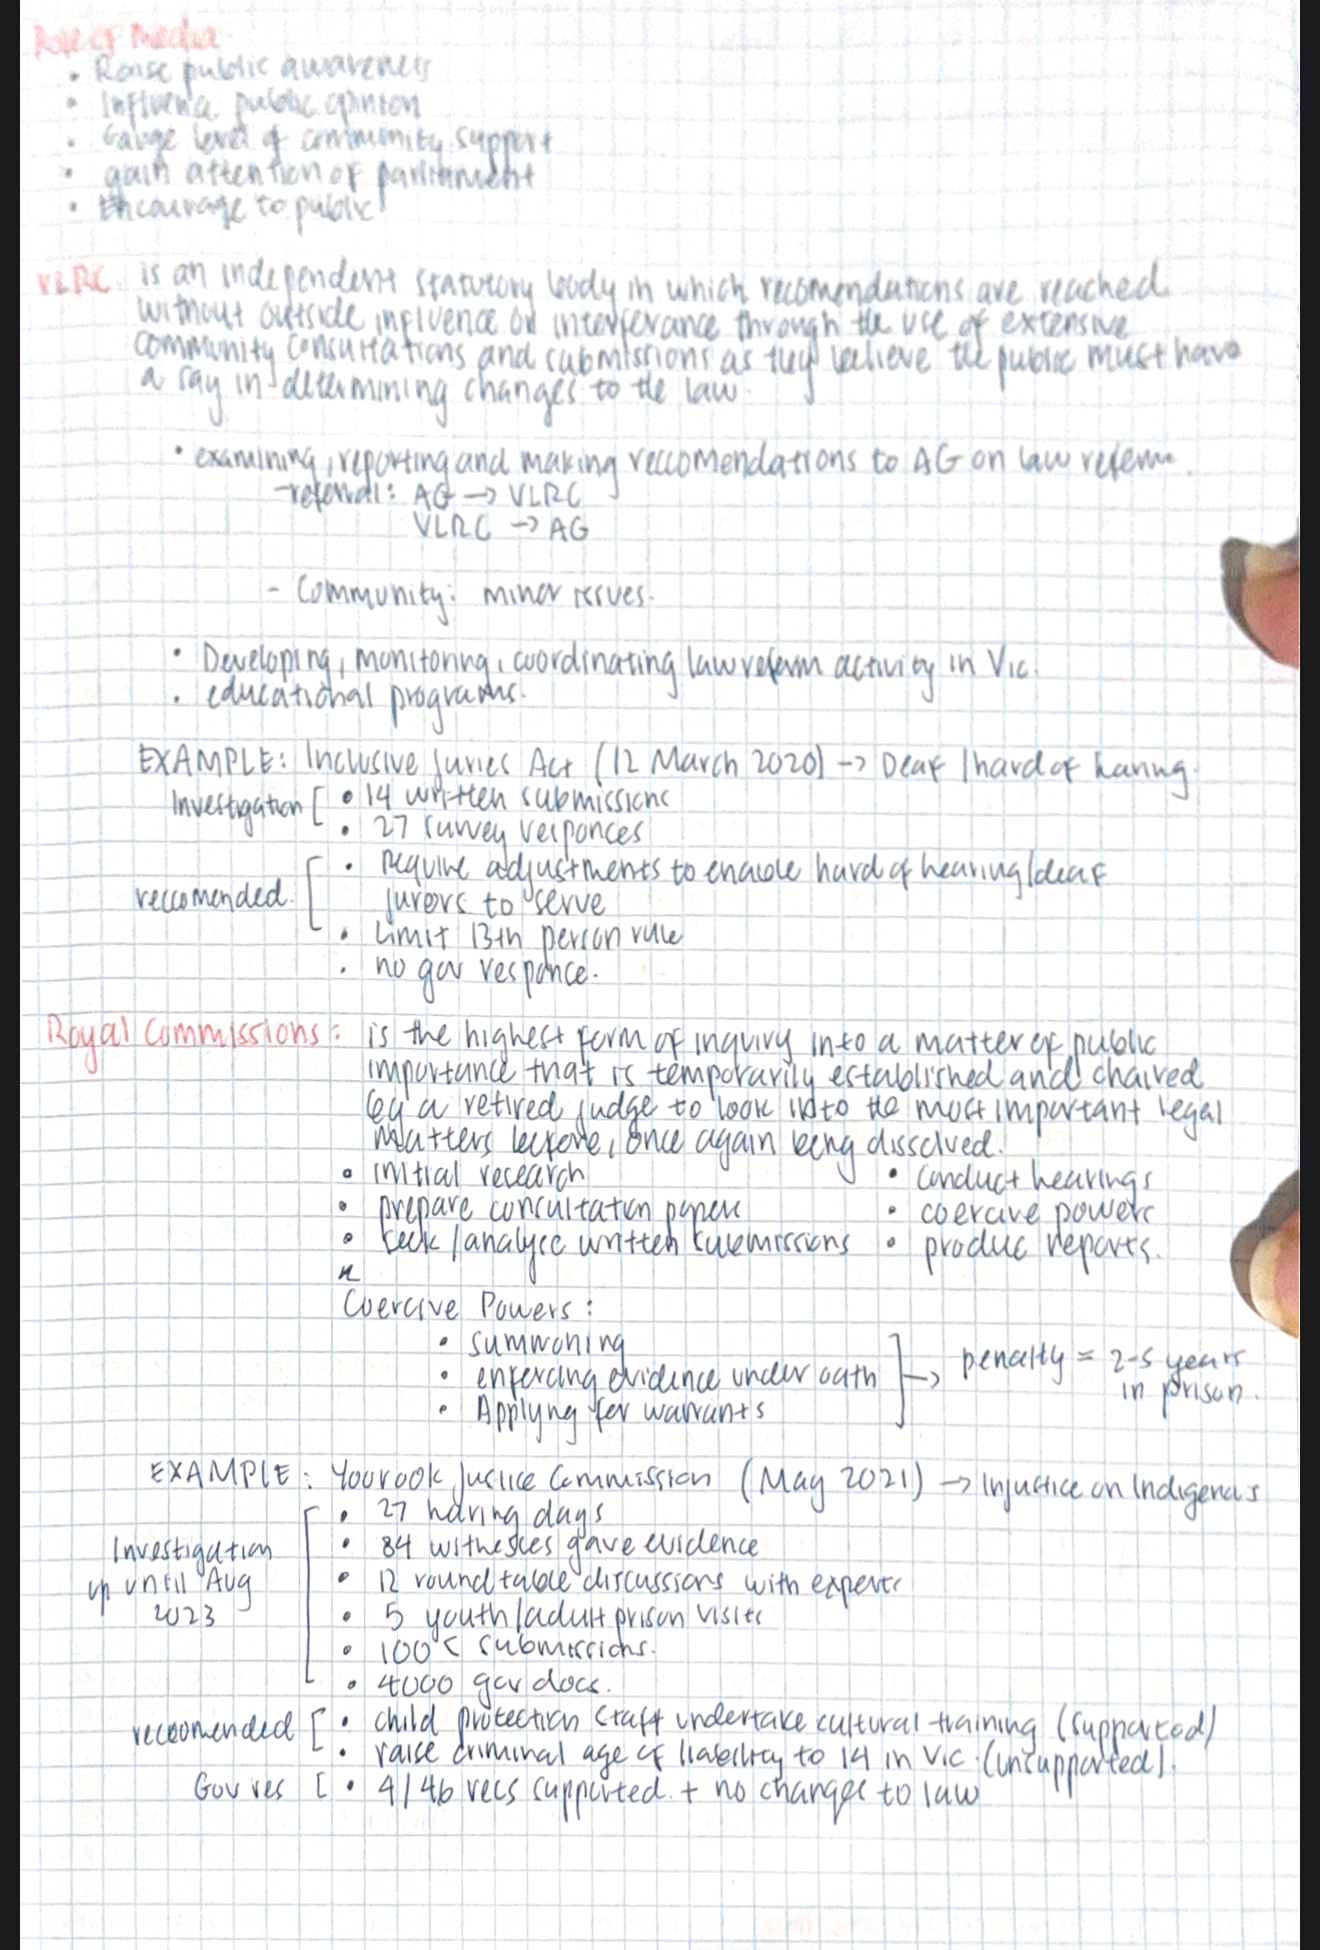 Role of Media
• Raise public awareness
• Influence public opinion
• Gauge level of community support
• gain attention of parliament
• Encourage to public
VLRC is an independent statutory body in which recomendations are reached
without outside influence or interferance through the use of extensive
community consultations and submissions as they believe the public must have
a say in determining changes to the law.
• examining, reporting and making reccomendations to AG on law reform.
- referral: AG → VLRC
VLRC → AG
- Community: minor issues.
• Developing, monitoring, coordinating law reform activity in Vic.
• educational programs.
EXAMPLE: Inclusive Juries Act (12 March 2020) → Deaf / hard of haring
Investigation [ • 14 written submissions
• 27 survey responces
• require adjustments to enable hard of hearing/deaf
reccomended. [ jurors to serve
• Limit 13th person rule
• no gov responce.
Royal Commissions: is the highest form of inquiry into a matter of public
importance that is temporarily established and chaired
by a retired judge to look into the most important legal
matters before, once again being dissolved.
• initial research • conduct hearings
• prepare consultation papers • coercive powers
• seek / analyse written submissions • produce reports.
Coercive Powers:
• summoning
• enforcing evidence under oath ] → penalty = 2-5 years in prison.
• Applying for warrants
EXAMPLE: Yoorook Justice Commission (May 2021) → Injustice on Indigenous
• 27 haring days
Investigation • 84 witnesses gave evidence
up until Aug • 12 round table discussions with experts
2023 • 5 youth/adult prison visits
• 100< submissions.
• 4000 gov docs.
reccomended [ • child protection staff undertake cultural training (supported)
• raise criminal age of liability to 14 in Vic. (unsupported).
Gov res [ • 4/46 recs supported. + no changes to law